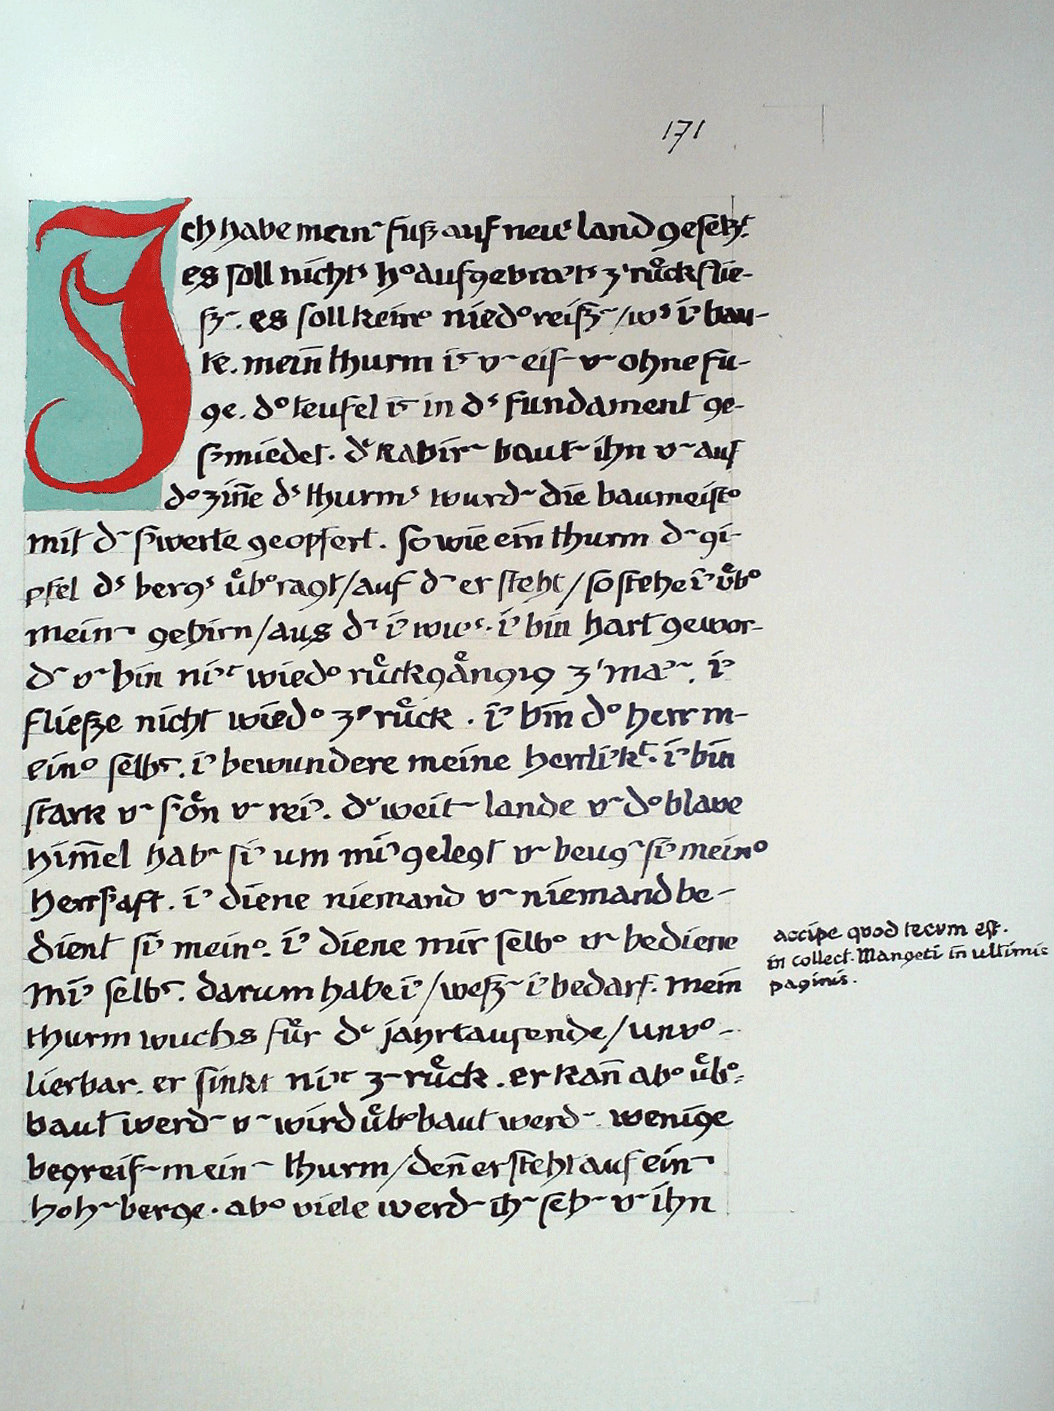 171
Ich habe mein⁓ fuß auf neuˢ land gesetzt.
es soll nichtˢ h°aufgebractˢ zʳrückflie-
ß⁓. es soll keine° nied°reiß⁓/wˢ i᾽ bau-
te. mein̄ thurm iˢ v⁓ eis⁓ v⁓ ohne fu-
ge. d° teufel iˢ in dˢ fundament ge-
smiedet. dᵉ kabir⁓ baut⁓ ihn v⁓ auf
d° zin̄e dˢ thurmˢ wurd⁓ die baumeist°
mit d⁓ swerte geopfert. so wie ein thurm d⁓ gi-
pfel dˢ bergˢ üb°ragt/auf d⁓ er steht/so stehe i᾽ üb°
mein⁓ gehirn/aus d⁓ i᾽ wuˢ. i᾽ bin hart gewor-
d⁓ v⁓ bin ni᾽ᵗ wied° rückgängig zʳ ma᾽⁓. i᾽
fließe nicht wied° zʳrück. i᾽ bin d° herr m-
ein° selbˢᵗ. i᾽ bewundere meine herrli᾽kᵗ. i᾽ bin
stark v⁓ sön v⁓ rei᾽. dᵉ weit⁓ lande v⁓ d° blaue
him̄el hab⁓ si᾽ um mi᾽ gelegt v⁓ beug⁓ si᾽ mein°
herrsaft. i᾽ diene niemand v⁓ niemand be-
dient si᾽ mein°. i᾽ diene mir selb° v⁓ bediene
mi᾽ selbˢᵗ. darum habe i᾽/weß⁓ i᾽ bedarf. mein
thurm wuchs für dᵉ jahrtausende/unv°-
lierbar. er sinkt ni᾽ᵗ z⁓rück. er kan̄ ab° üb°-
baut werd⁓ v⁓ wird üb°baut werd⁓. wenige
begreif⁓ mein⁓ thurm/den̄ er steht auf ein⁓
hoh⁓ berge. ab° viele werd⁓ ih⁓ seh⁓ v⁓ ihn
accipe quod tecum est.
in collect. Mangeti in ultimis
paginis.